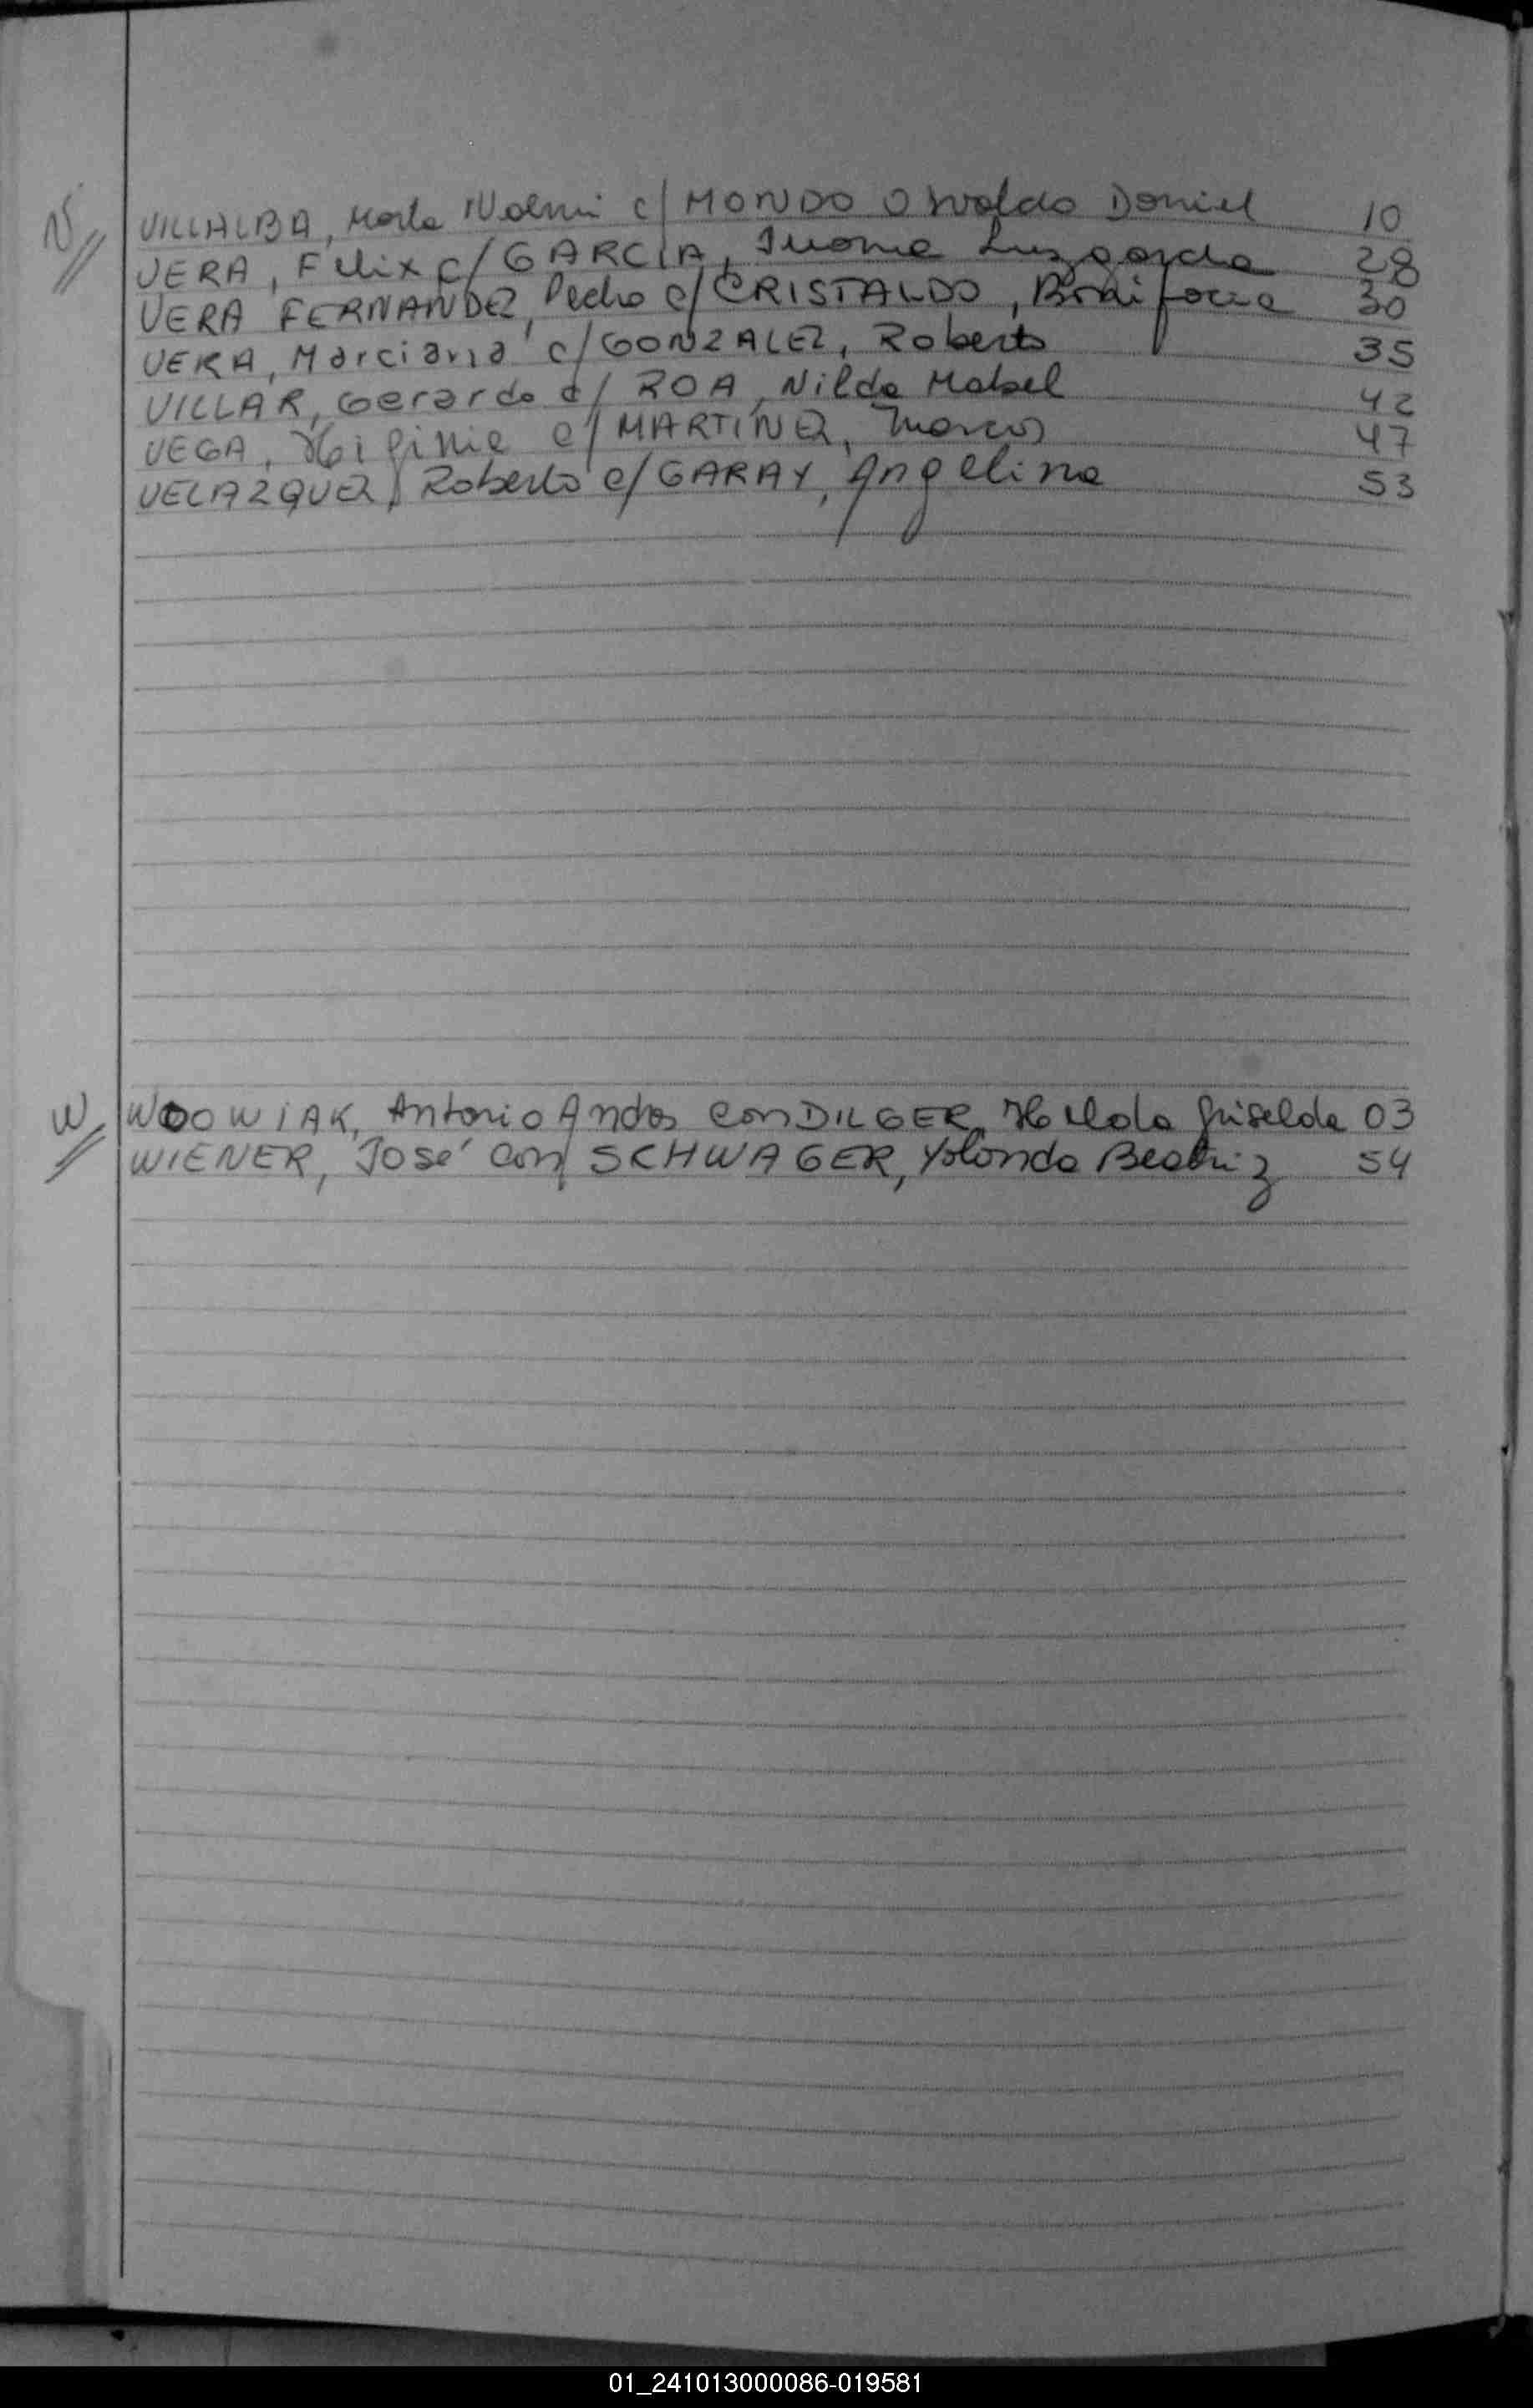 V
VILLALBA, Marta Noemi c/ MONDO Osvaldo Daniel 10
VERA, Felix c/ GARCIA, Juana Luzgarda 28
VERA FERNANDEZ, Pedro c/ CRISTALDO, Bonifacia 30
VERA, Marciana c/ GONZALEZ, Roberto 35
VILLAR, Gerardo c/ ROA, Nilda Mabel 42
VEGA, Higinia c/ MARTINEZ, Marcos 47
VELAZQUEZ, Roberto c/ GARAY, Angelina 53
W
Antonio Andres con DILGER, Griselda 03
WIENER, José con SCHWAGER, Yolanda Beatriz 54
01_241013000086-019581